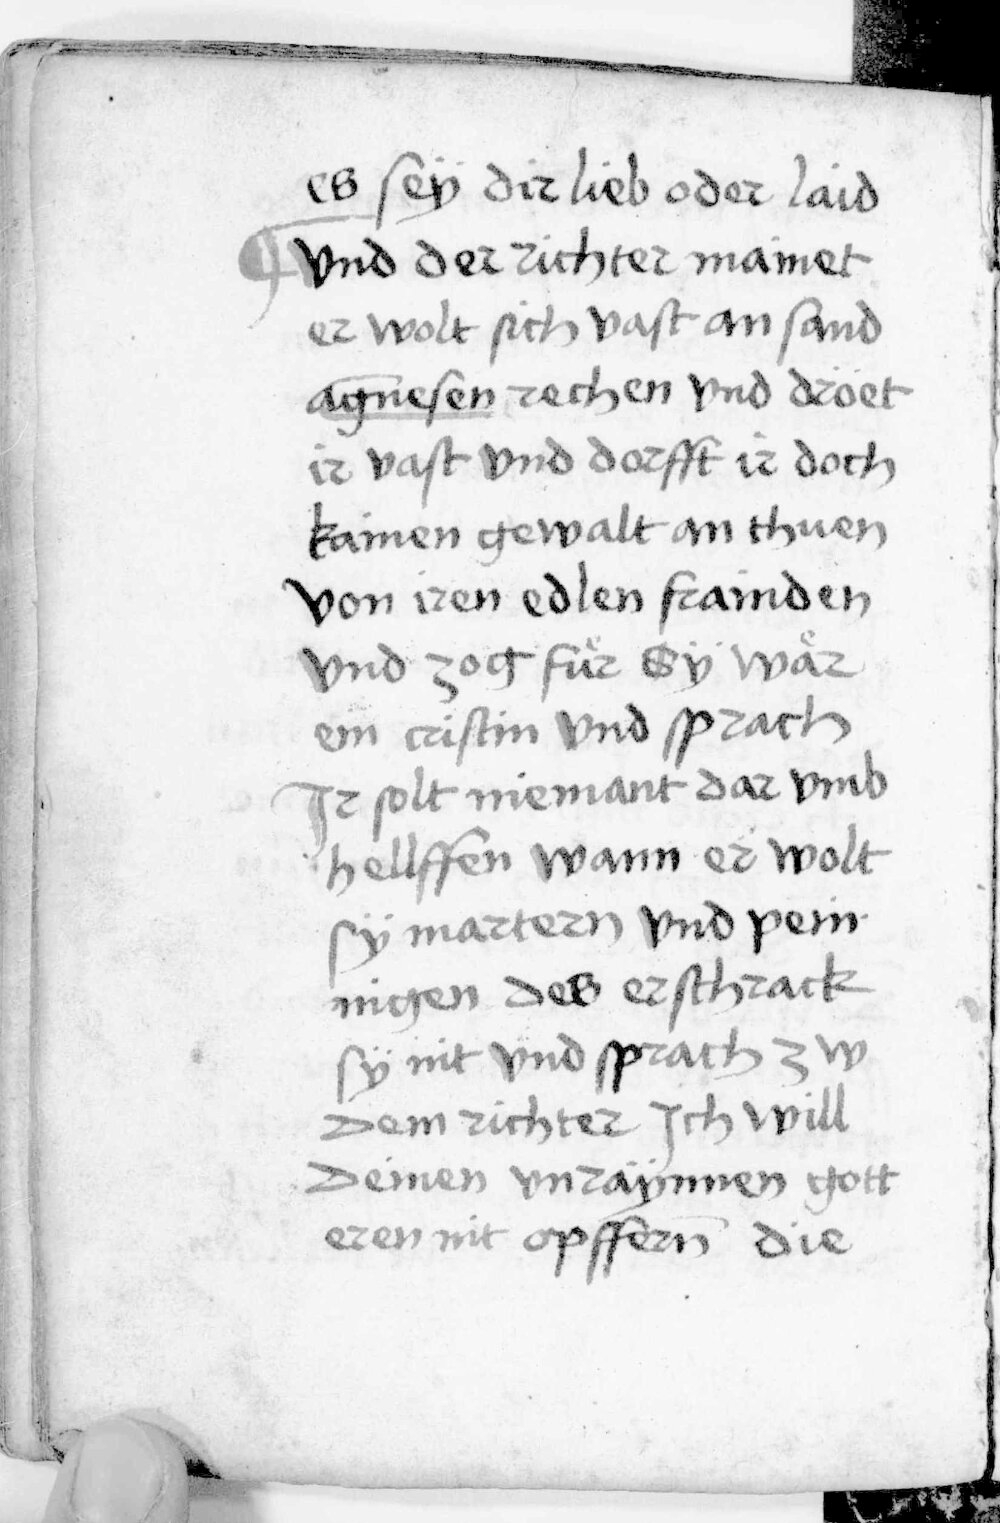 es seÿ dir lieb oder laid
¶ vnd der richter mainet
er wolt sich vast an sand
agnesen rechen vnd dröet
ir vast vnd dorfft ir doch
kainen gewalt an thuen
von iren edlen frainden
vnd zog fuͤr Sÿ waͤr
ein cristin vnd sprach
Ir solt niemant dar vmb
hellffen wann er wolt
sÿ martern vnd pein
nigen des erschrack
sÿ nit vnd sprach zw
dem richter Ich will
deinen vnraÿnnen gött
eren nit opffern̄ die